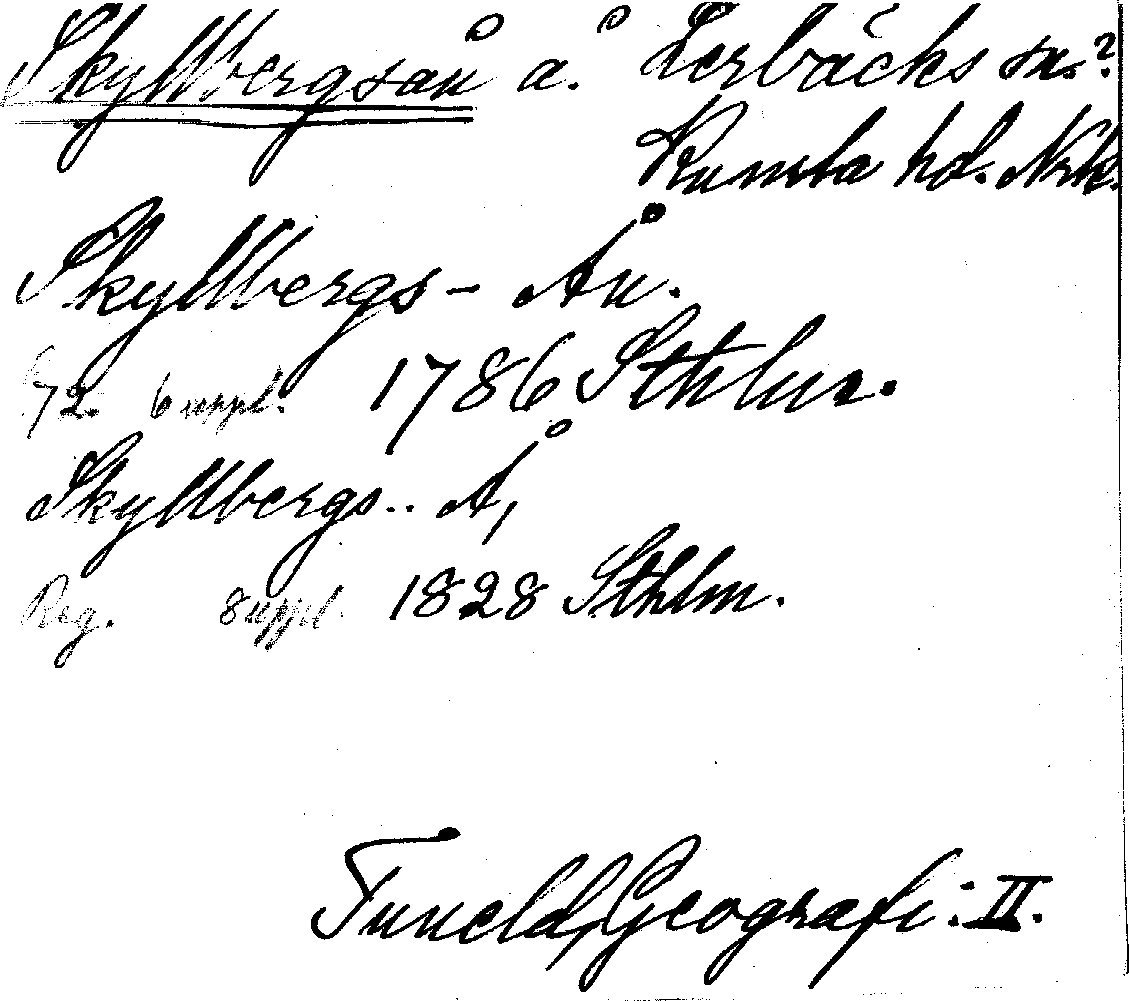 Skyllbergsån å. Lerbäcks sn.?
Kumla hd. Nrk.
Skyllbergs- Ån.
72. 6 uppl. 1786 Sthlm.
Skyllbergs.. Å,
Reg. 8 uppl. 1828 Sthlm.
Tuneld, Geografi: II.